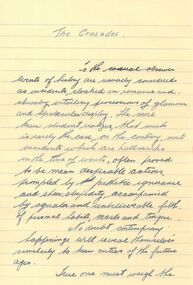 The Crusades.
To the casual observer
events of history are usually considered
as incidents, cloaked in romance and
chivalry, entailing processions of glamour
and spectacular display. The more
keen student realizes, that such
is rarely the case, on the contrary, such
incidents which are hallmarks
in the tree of events, often proved
to be mean despicable actions,
prompted by the pathetic ignorance
and sheer stupidity accompanied
by squalor and unbelievable filth,
of personal habits, minds and tongue.
No doubt contemporary
happenings will reveal themselves
similarly to keen critics of the future
ages.
True one must weigh the